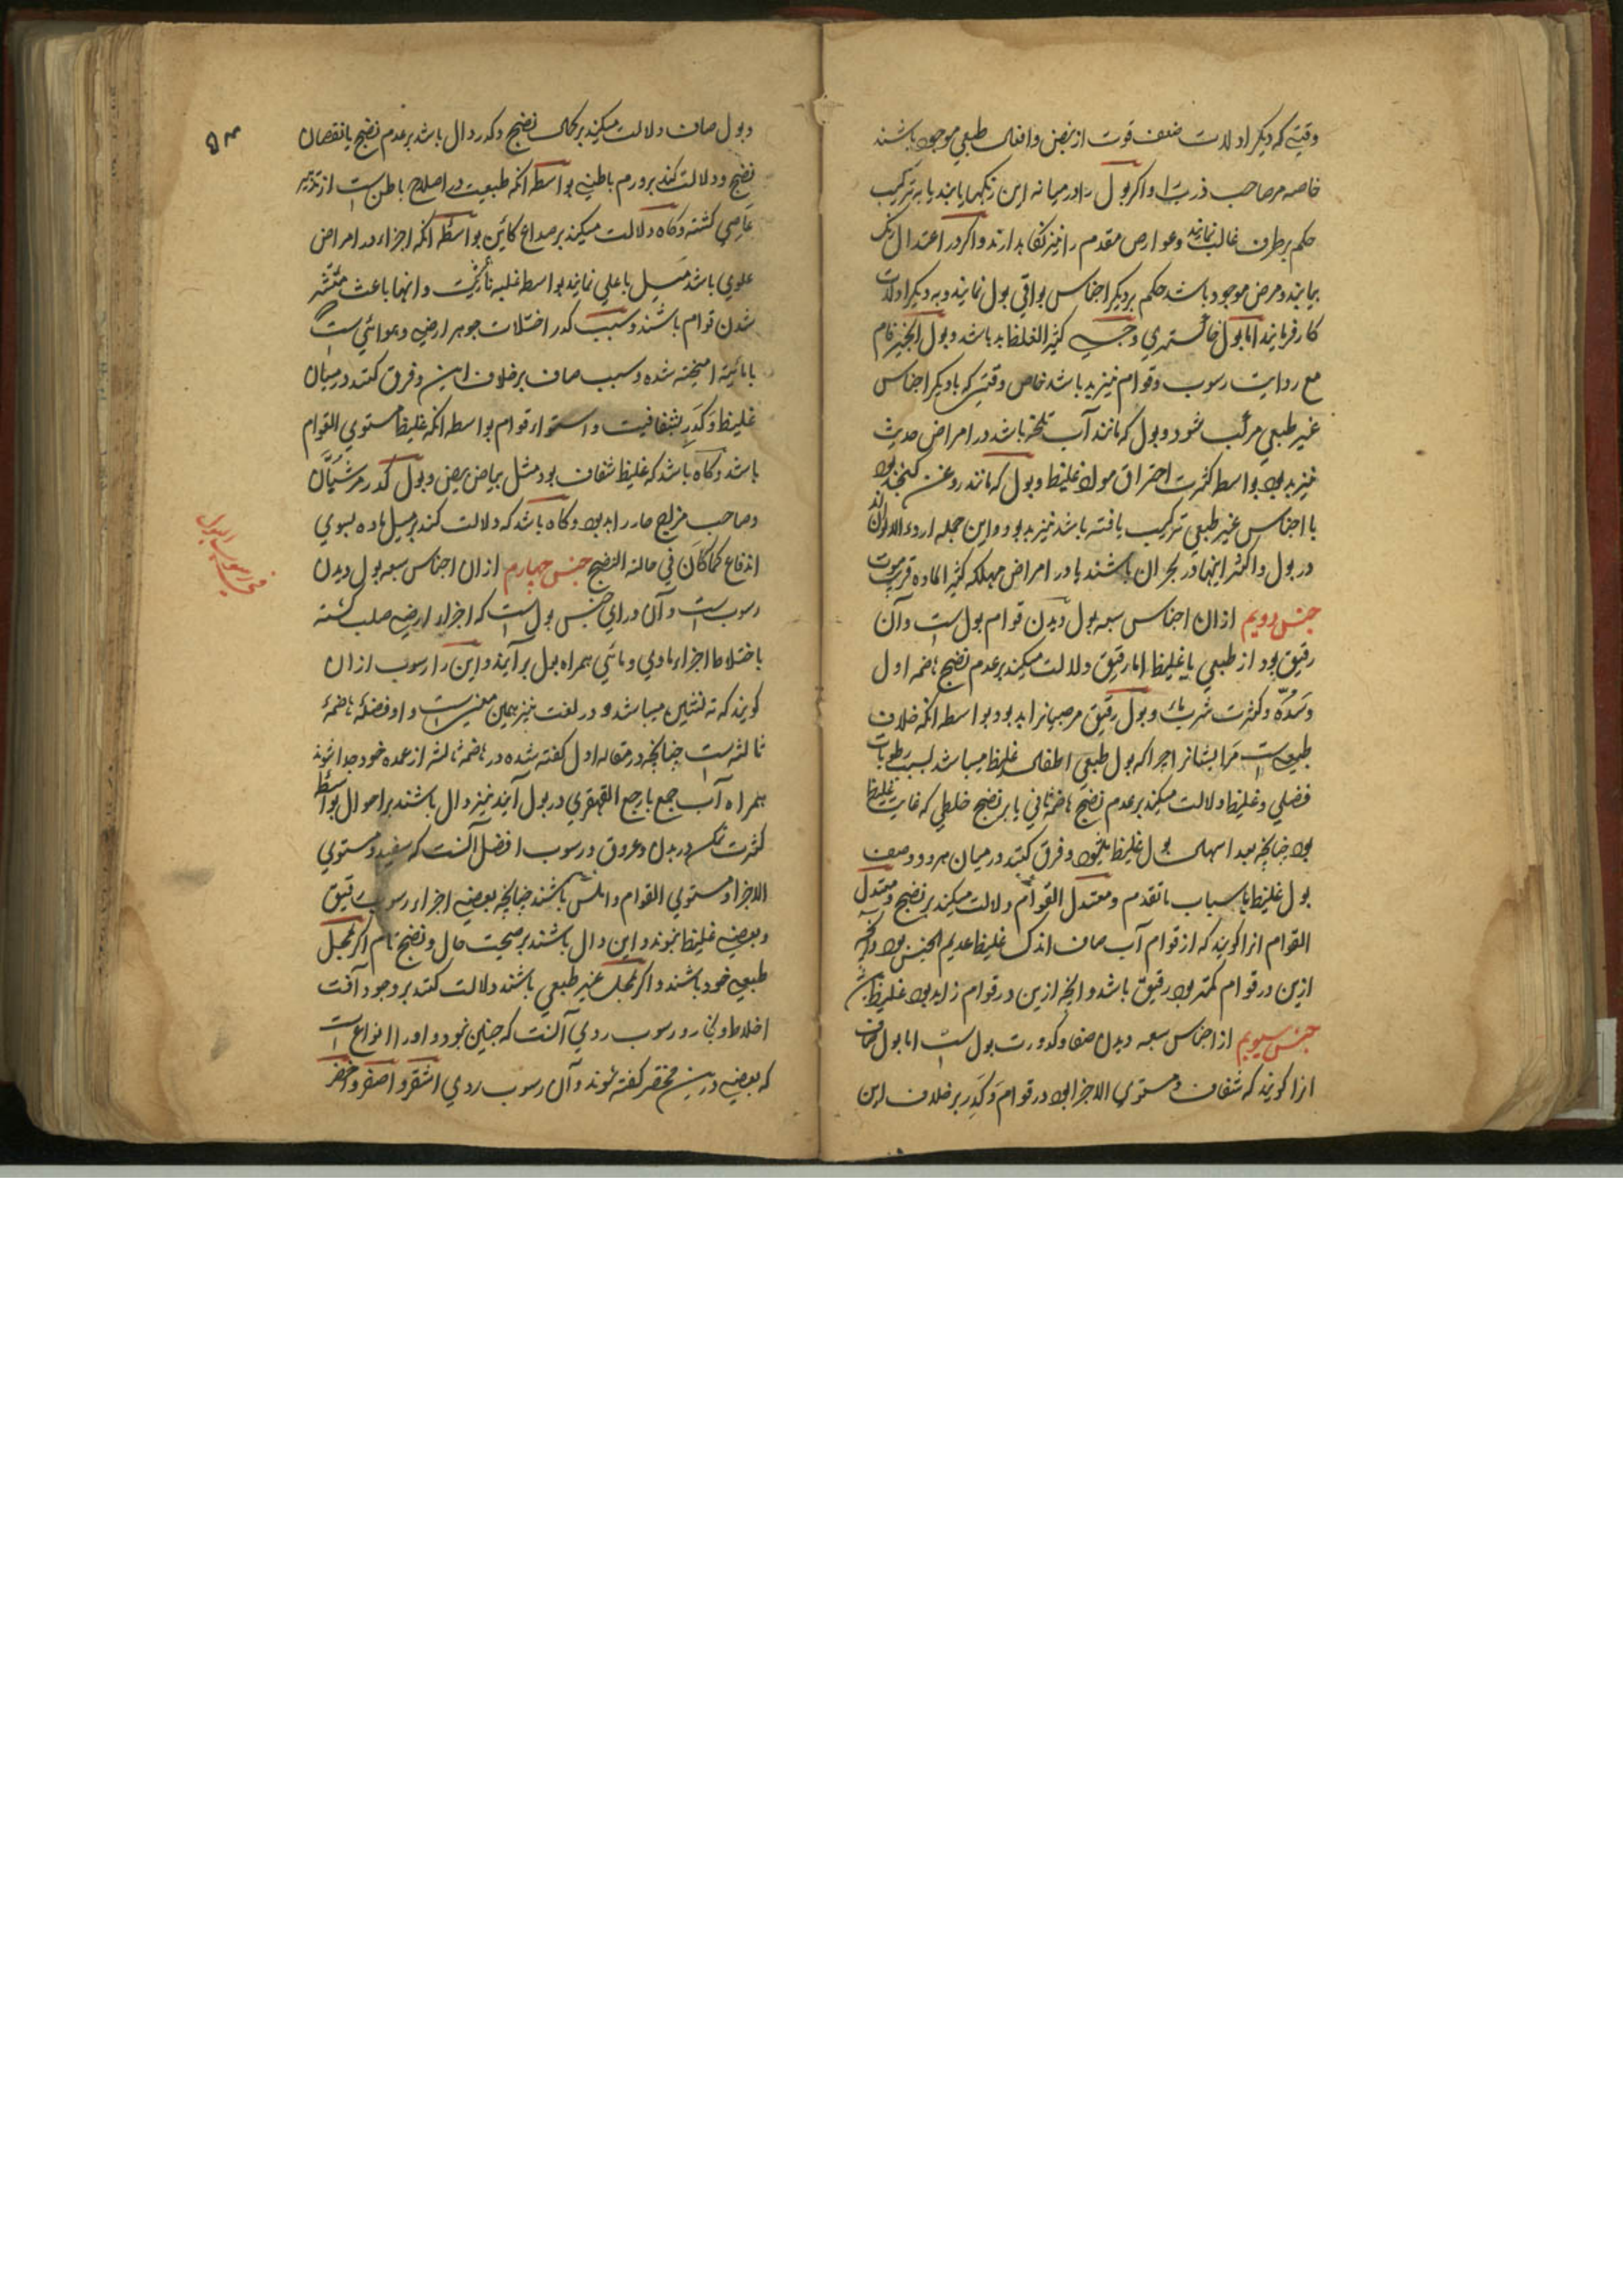 وقتی که دیکر ادلات ضعف قوت از نبض و افعال طبعی موجود باشند
خاصه مر صاحب ذرب را و اکر بول را در میانه این رنکها یابند یا به ترکیب
حکم بر طرف غالب نمایند و عوارض مقدم را نیز نکاه دارند و اکر در اعتدال رنک
بیابند و مرض موجود باشد حکم بر دیکر اجناس بواقی بول نمایند و به دیکر ادلات
کار فرمایند اما بول کثیر الغلظ بد باشد و بول
مع رسوب و قوام نیز بد باشد خاص وقتی که با دیکر اجناس
غیر طبعی مرکب شود و بول که مانند آب باشد در امراض
نیز بد بود بواسطه کثرت احتراق مواد غلیظ و بول که مانند روغن کنجد بود
با اجناس غیر طبعی ترکیب یافته باشد نیز بد بود و این جمله اردء الالوان اند
در بول و اکثر اینها در بحران باشند یا در امراض مهلکه کثیر الماده قریب موت
جنس دویم از ان اجناس سبعه بول دیدن قوام بول است و آن
رقیق بود از طبعی یا غلیظ اما رقیق دلالت میکند بر عدم نضج هاضمه اول
و سده و کثرت شرب ماء و بول رقیق مر صبیانرا بد بود بواسطه انکه خلاف
طبیعت است مر ایشانرا چرا که بول طبعی اطفال غلیظ میباشد بسبب رطوبات
فضلی و غلیظ دلالت میکند بر عدم نضج هاضمه ثانی یا بر نضج خلطی که غایت غلیظ
بود چنانچه بعد اسهال بول غلیظ بود و فرق کنند در میان هر دو وصف
بول غلیظ با سباب ما تقدم و معتدل القوام دلالت میکند بر نضج و معتدل
القوام انرا کویند که از قوام آب صاف اندک غلیظ عدیم بود و آنچه
ازین در قوام کمتر بود رقیق باشد و انچه ازین در قوام زاید بود غلیظ باشد
جنس سیویم از اجناس سبعه دیدن صفا و کدورت بول است اما بول صاف
انرا کویند که شفاف و مستوی الاجزا بود در قوام و کدر بر خلاف این
۵۳
و بول صاف دلالت میکند بر کمال نضج و کدر دال باشد بر عدم نضج یا نقصان
نضج و دلالت کند بر ورم باطنی بواسطه انکه طبیعت در اصلاح باطن است از تدبیر
عاصی کشته و کاه دلالت میکند بر صداع کاین بواسطه انکه اجزاء در امراض
علوی باشد میل با علی نمایند بواسطه غلبه ناریت و انها باعث منتشر
شدن قوام باشند و سبب کدر اختلاط جوهر ارضی و هوائی است
با مائیه امیخته شده و سبب صاف بر خلاف این و فرق کنند در میان
غلیظ و کدر بشفافیت و استواء قوام بواسطه انکه غلیظ مستوی القوام
باشد و کاه باشد که غلیظ شفاف بود مثل بیاض بیض و بول کدر مر شبان
و صاحب مزاج حار را بد بود و کاه باشد که دلالت کند بر میل ماده بسوی
اندفاع کما کان فی حالة النضج جنس چهارم از ان اجناس سبعه بول دیدن
رسوب است و آن ورای جنس بول است که اجزاء ارضیه صلب کشته
باختلاط اجزاء مادی و مائی همراه بول بر آیند و این را رسوب از ان
کویند که ته نشین میباشد و در لغت نیز همین معنیست و او فضله هاضمه
ثالثه است چنانچه در مقاله اول کفته شده در هاضمه ثالثه از عمده خود جدا شوند
همراه آب جمع با رجع القهقری در بول آیند نیز دال باشند بر احوال بواسطه
کثرت در بدن و عروق و رسوب افضل آنست که سفید و مستوی
الاجزا و مستوی القوام و املس باشند چنانچه بعضی اجزاء رسوب رقیق
و بعضی غلیظ نبوند و این دال باشند بر صحت حال و نضج تام اکر بمحل
طبعی خود باشند و اکر بمحل غیر طبعی باشند دلالت کنند بر وجود آفت
اخلاط و بخار و رسوب ردی آنست که چنین نبود و او را انواع است
که بعضی درین مختصر کفته شوند و آن رسوب ردی اشقر و اصفر و احمر